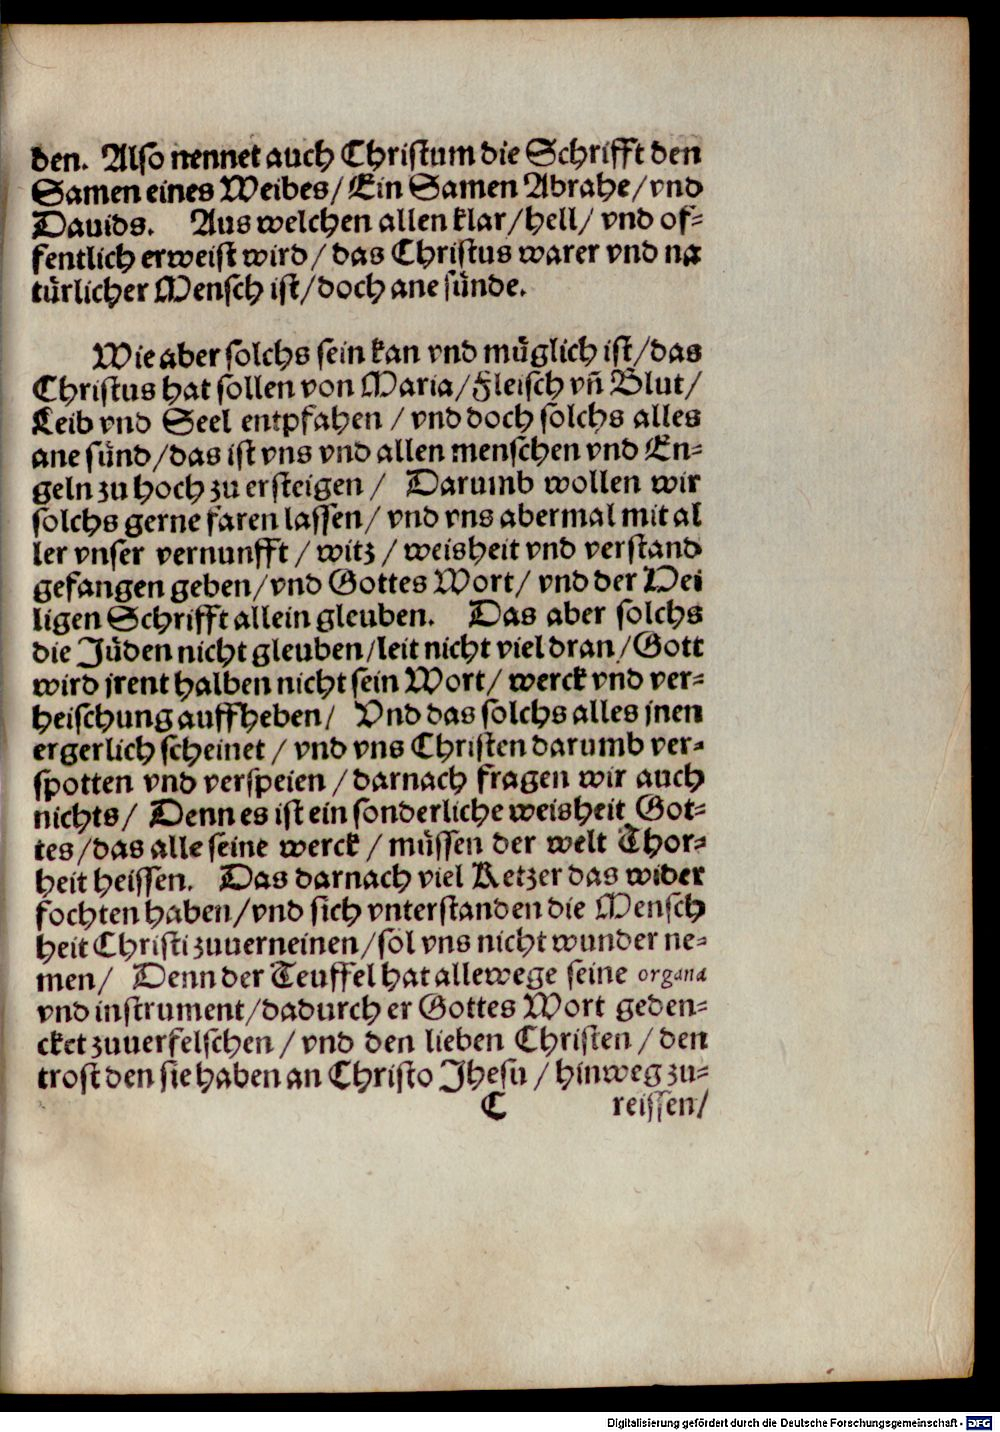 den. Also nennet auch Christum die Schrifft den
Samen eines Weibes/ Ein Samen Abrahe/ vnd
Dauids. Aus welchen allen klar/ hell/ vnd of-
fentlich erweist wird/ das Christus warer vnd na
türlicher Mensch ist/ doch ane sünde.
Wie aber solchs sein kan vnd müglich ist/ das
Christus hat sollen von Maria/ Fleisch vñ Blut/
Leib vnd Seel entpfahen / vnd doch solchs alles
ane sünd/ das ist vns vnd allen menschen vnd En-
geln zu hoch zu ersteigen / Darumb wollen wir
solchs gerne faren lassen/ vnd vns abermal mit al
ler vnser vernunfft / witz / weisheit vnd verstand
gefangen geben/ vnd Gottes Wort/ vnd der Hei
ligen Schrifft allein gleuben. Das aber solchs
die Jüden nicht gleuben/ leit nicht viel dran/ Gott
wird jrent halben nicht sein Wort/ werck vnd ver-
heischung auffheben/ Vnd das solchs alles jnen
ergerlich scheinet / vnd vns Christen darumb ver-
spotten vnd verspeien / darnach fragen wir auch
nichts/ Denn es ist ein sonderliche weisheit Got-
tes/ das alle seine werck / müssen der welt Thor-
heit heissen. Das darnach viel Ketzer das wider
fochten haben/ vnd sich vnterstanden die Mensch
heit Christi zuuerneinen/ sol vns nicht wunder ne-
men/ Denn der Teuffel hat allewege seine organa
vnd instrument/ dadurch er Gottes Wort geden-
cket zuuerfelschen / vnd den lieben Christen / den
trost den sie haben an Christo Jhesu / hinweg zu-
C reissen/
Digitalisierung gefördert durch die Deutsche Forschungsgemeinschaft - DFG